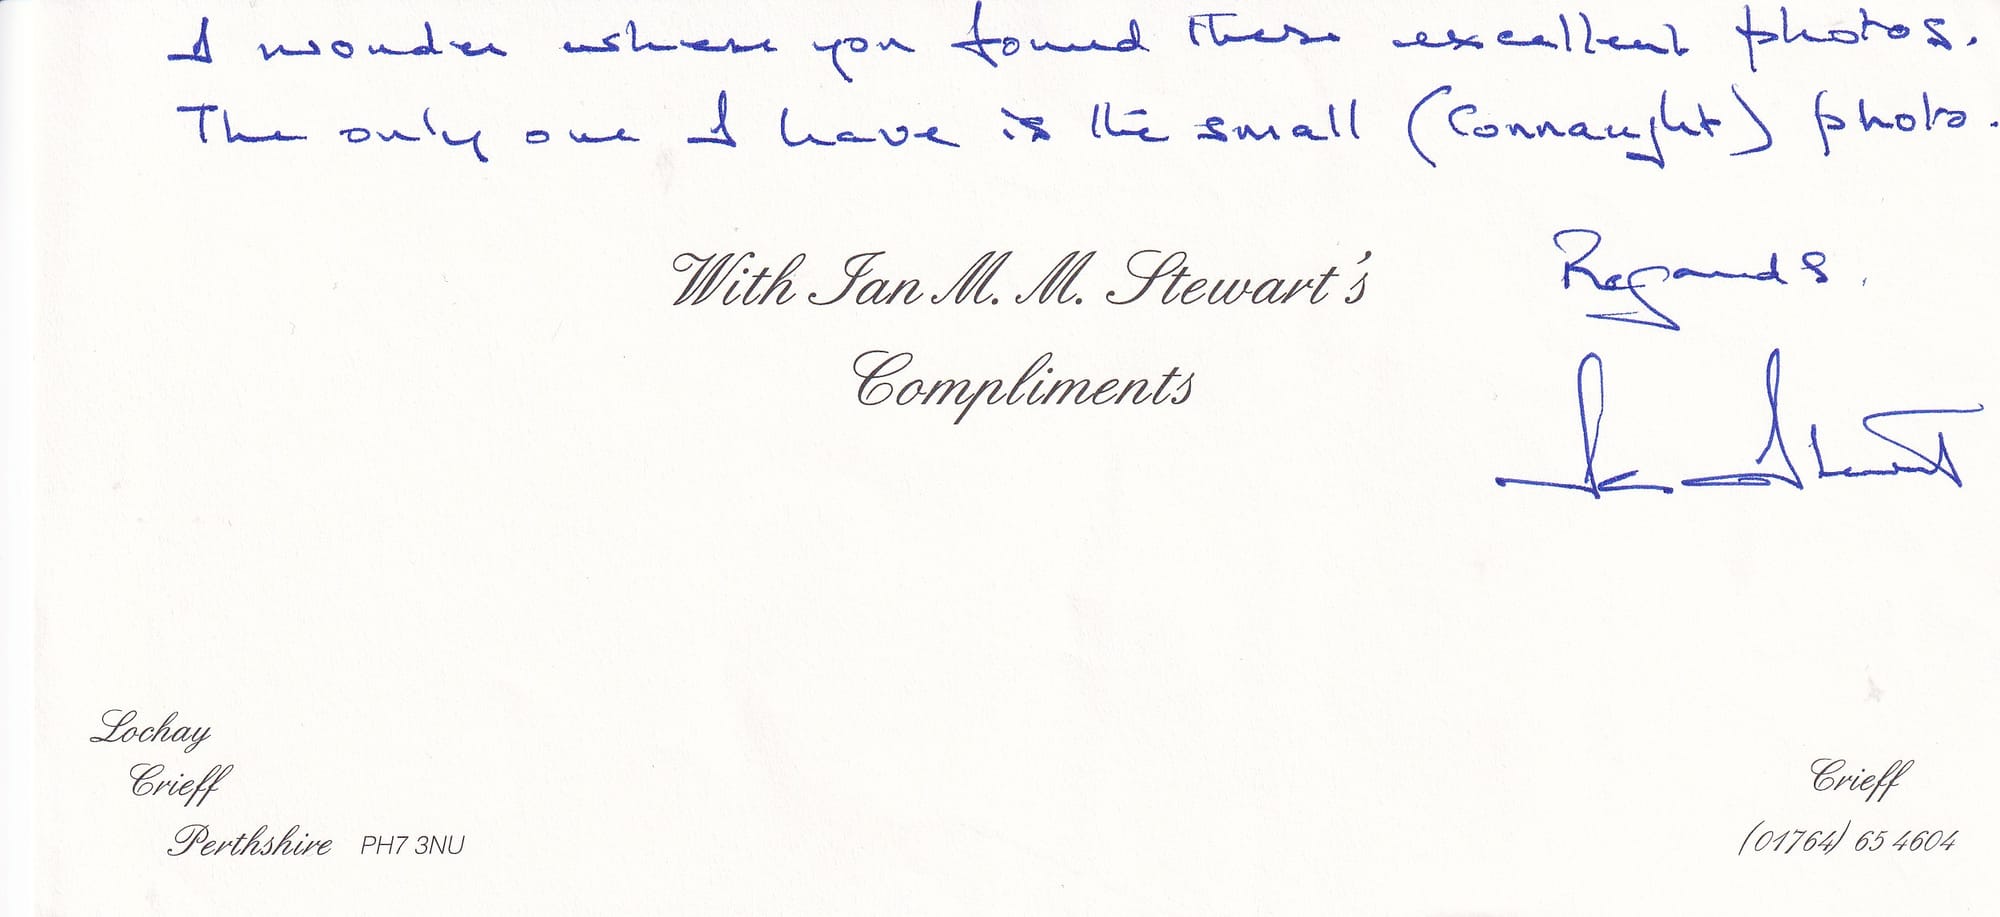 I wonder where you found these excellent photos.
The only one I have is the small (Connaught) photo.
Regards.
Ian Stewart
With Ian M. M. Stewart's
Compliments
Lochay
Crieff
Perthshire PH7 3NU
Crieff
(01764) 65 4604